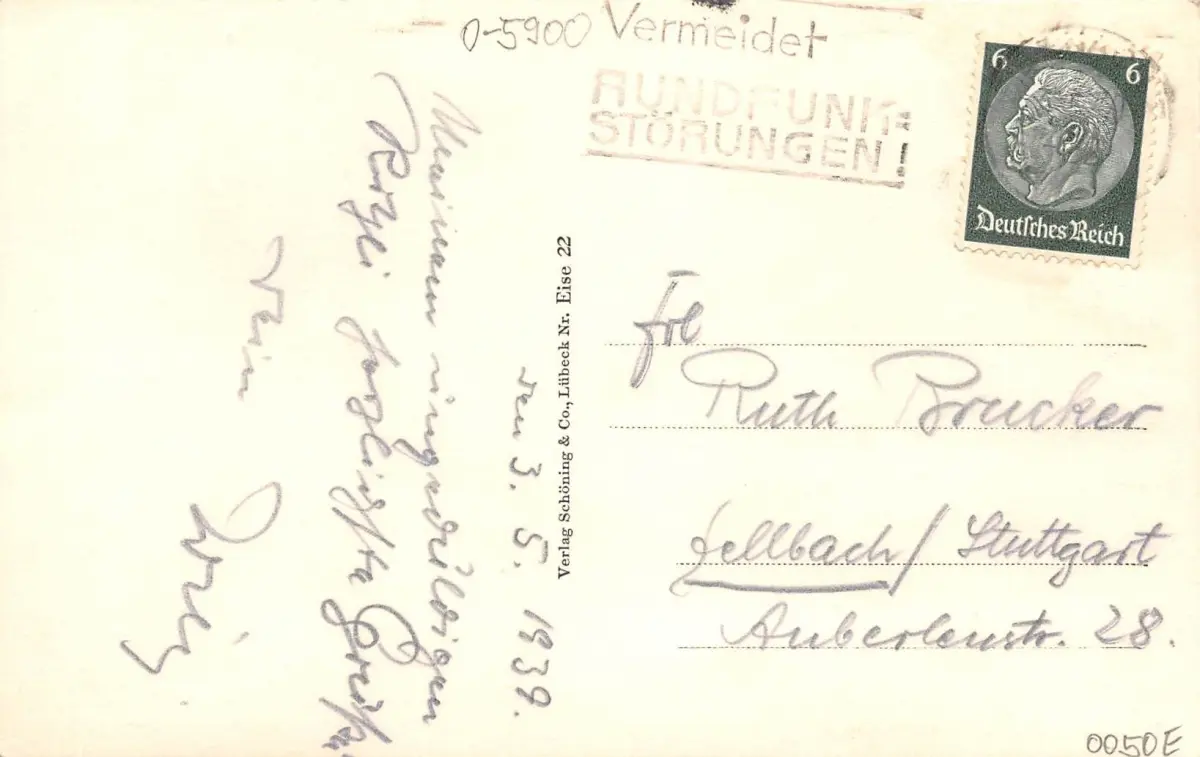 0-5900
Vermeidet
RUNDFUNK-
STÖRUNGEN!
6 6
Deutsches Reich
den 3. 5. 1939.
Meinem ungeduldigen
herzlichste Grüße
Dein
Verlag Schöning & Co., Lübeck Nr. Eise 22
Frl
Ruth Brucker
Fellbach/Stuttgart
Auberlenstr. 28.
0050E